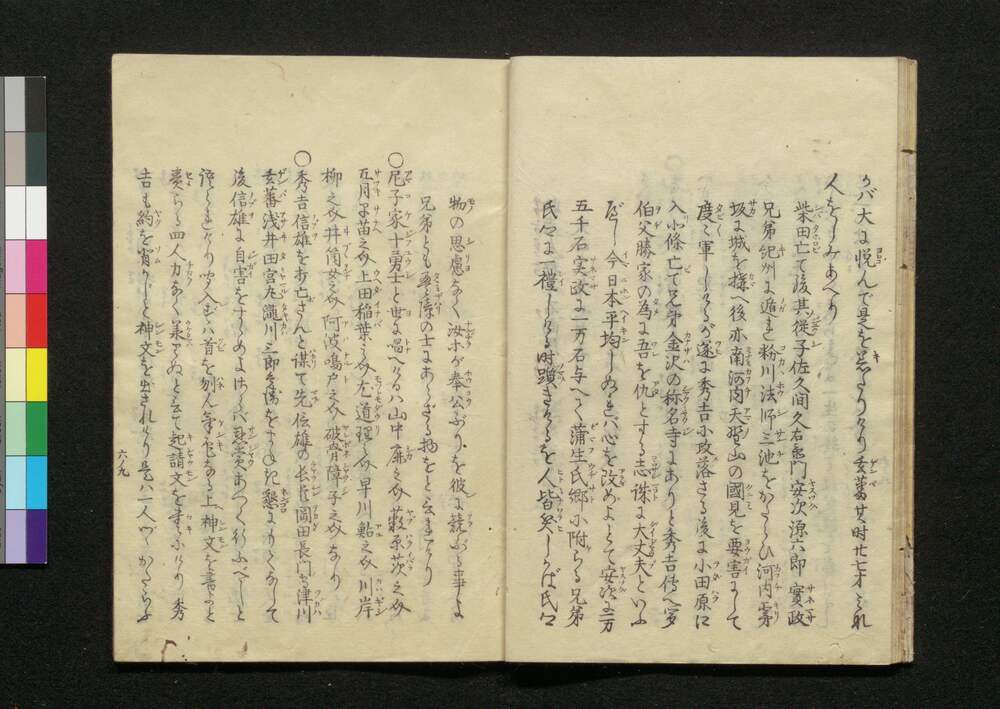 バ大に悦んで是を着たりけり玄蕃其時廿七才それ
人をしみあへり
柴田亡て後其従子佐久間久右衛門安次源六郎實政
兄弟紀州に遁れ粉川法師三池をかたらひ河内霧
坂に城を搆へ後亦南河内天野山の國見を要害にして
度々軍しけるが遂に秀吉に攻落さる後に小田原に
入小條亡て兄弟金沢の称名寺にありと秀吉传へ
伯父勝家の為に吾を仇とする志誠に大丈夫といふ
べし今日本平均しぬれバ心を改めよとて安次に一万
五千石実政に一万石与へて蒲生氏郷に附らる兄弟
氏郷に一禮しける時躓きけるを人皆笑しかば氏郷
物の思慮なく汝等が奉公ぶりを彼に競ぶる事よ
兄弟ともに畳の士にあらざる物をと云れけり
○尼子家十勇士と世に唱へけるハ山中鹿之介藪原茨之介
五月早苗之介上田稲葉之介尤道理之介早川鮎之介川岸
柳之介井筒女之介阿波鳴戸之介破骨障子之介なり
○秀吉信雄を亡さんと謀て先信雄の长臣岡田長門守津川
玄蕃浅井田宮丸瀧川三郎兵衛をまねき懇にもてなして
後信雄に自害をすゝめよはゝ恩賞あつく行ふべしと
語られけり聞入ずハ首を刎ん氣色なる上神文を書よと
責らる四人力なく承りぬと云て起請文を書にけり秀
吉も約を背かじと神文を出されけり是ハ一人づゝかたらふ
六ノ九